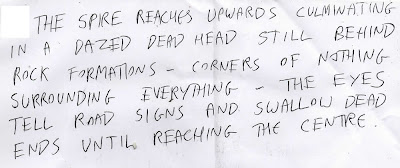 THE SPIRE REACHES UPWARDS CULMINATING
IN A DAZED DEAD HEAD STILL BEHIND
ROCK FORMATIONS – CORNERS OF NOTHING
SURROUNDING EVERYTHING – THE EYES
TELL ROAD SIGNS AND SWALLOW DEAD
ENDS UNTIL REACHING THE CENTRE.